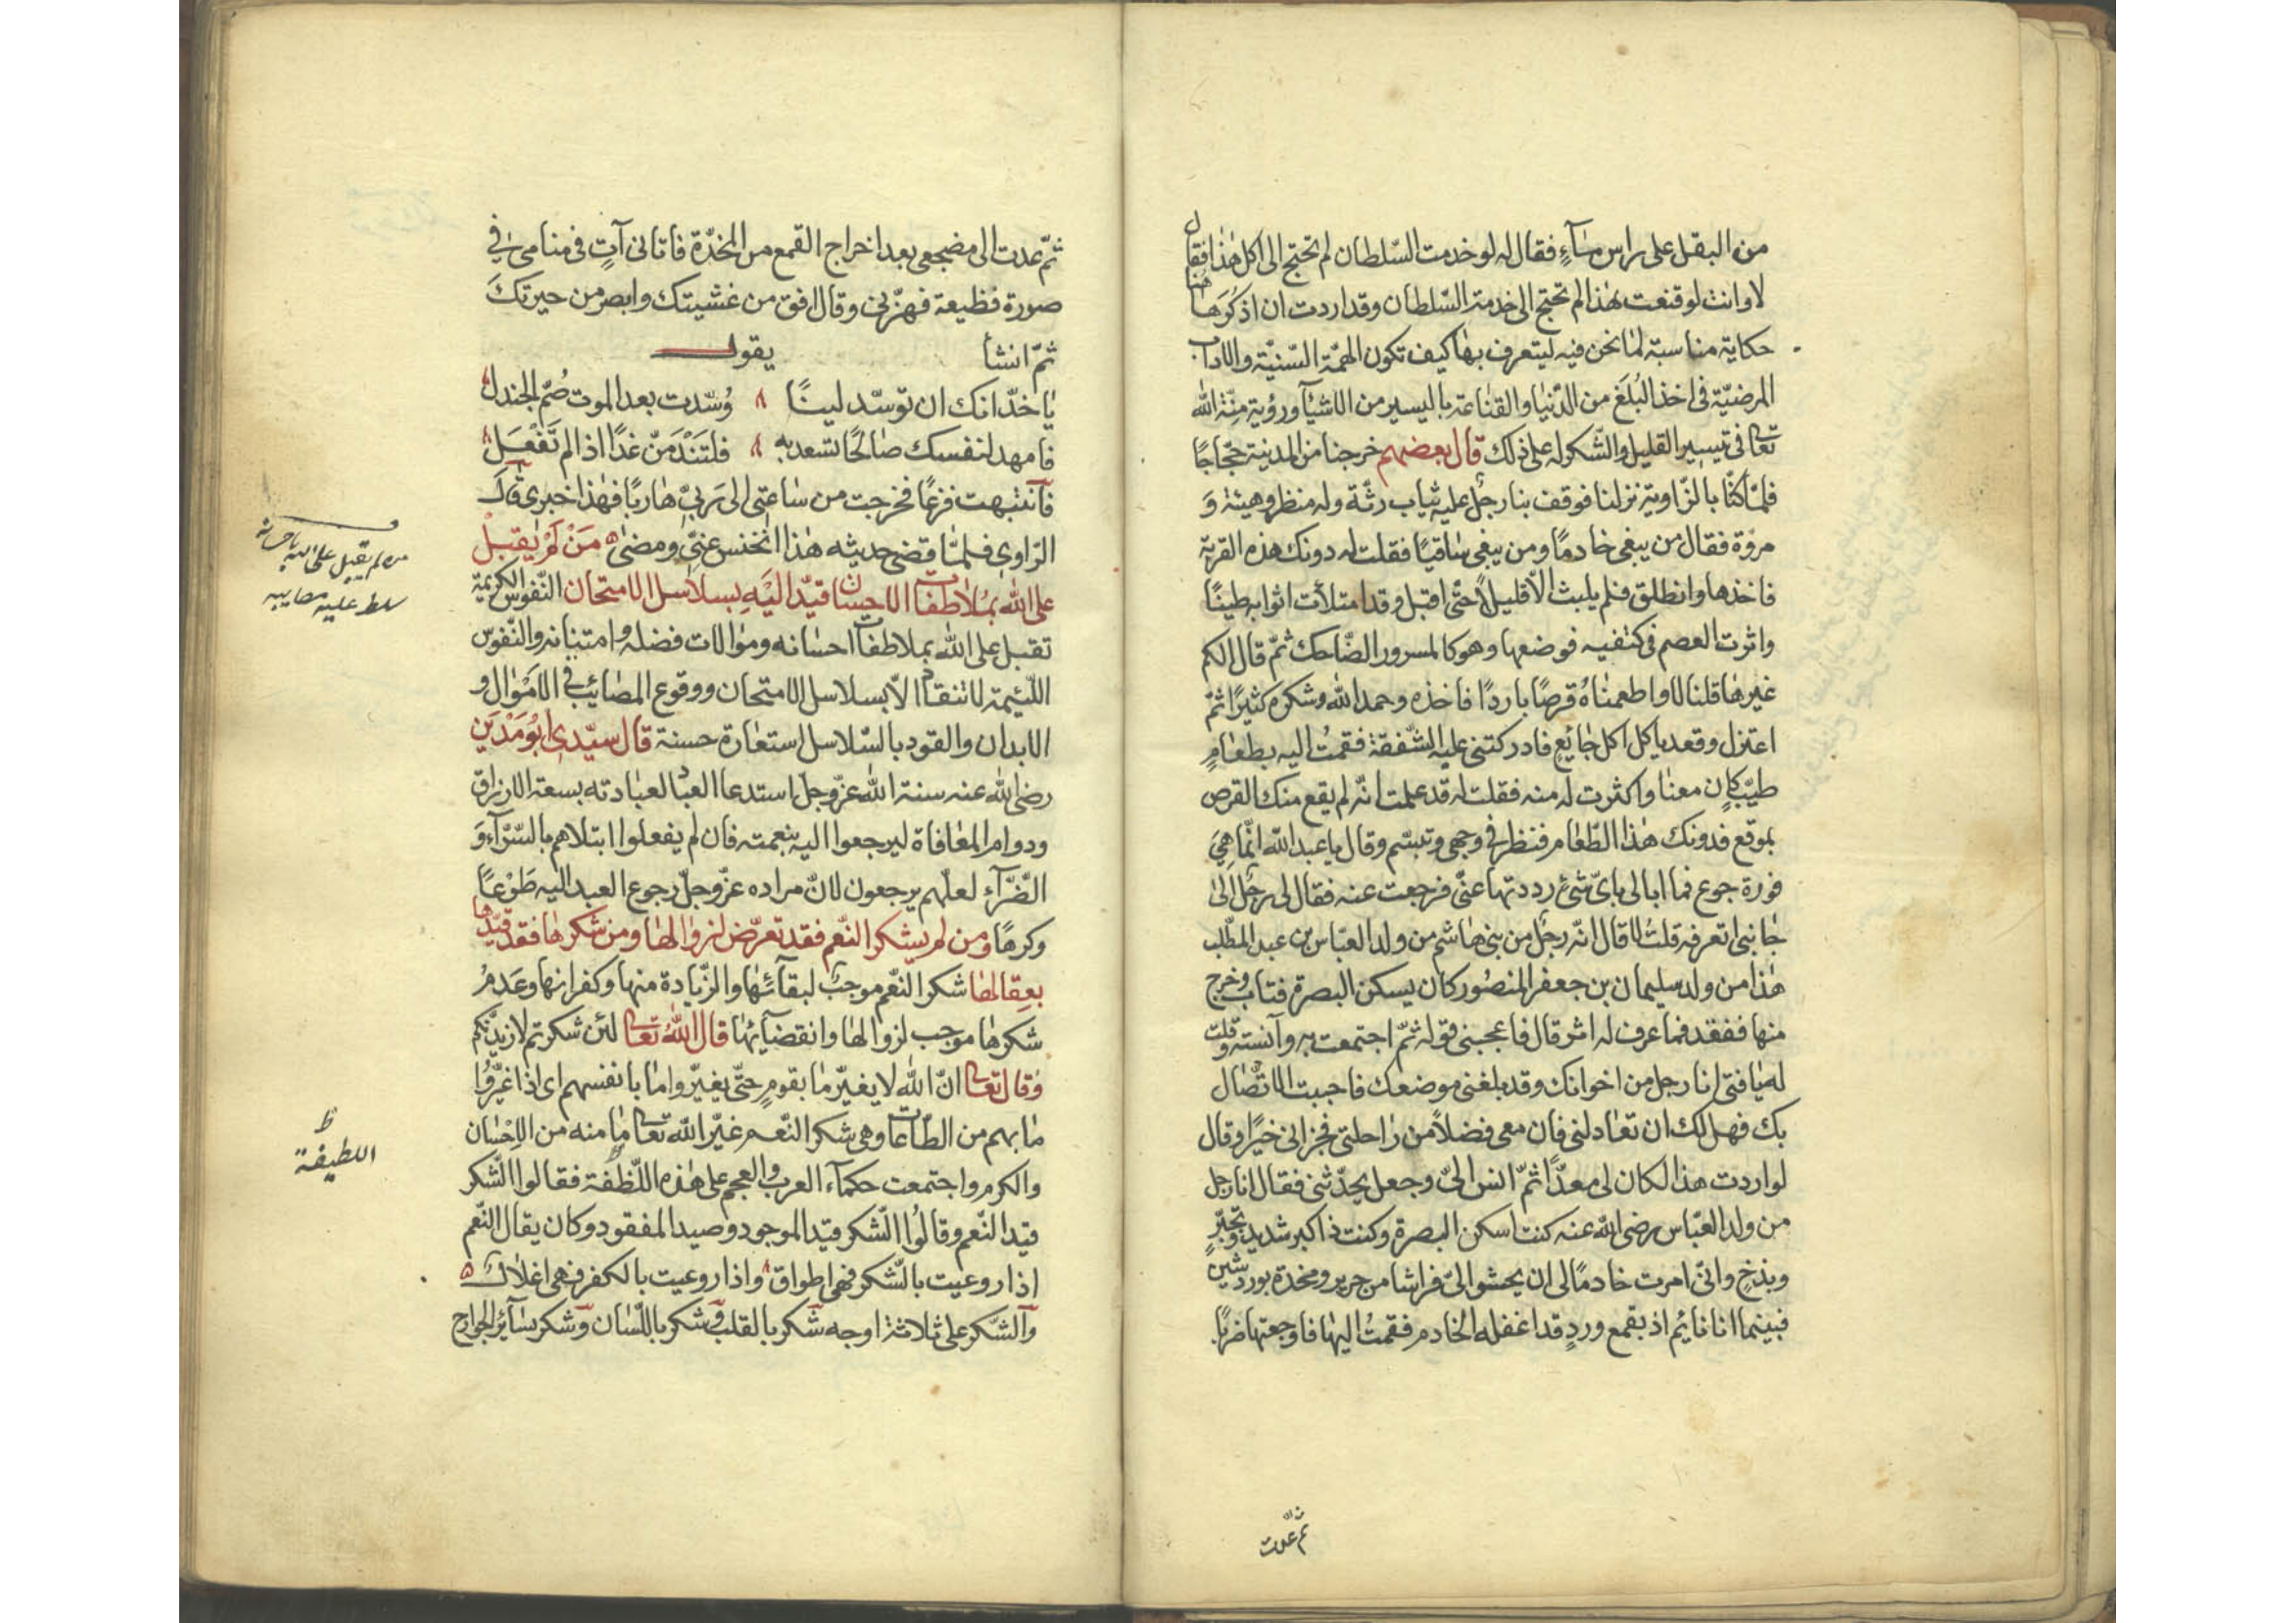 من البقل على راس ماءٍ فقال له لو خدمت السّلطان لم تحتج الى اكل هذا فقال
لا وانت لو قنعت هذا لم تحتج الى خدمة السّلطان وقد اردت ان اذكرها هنا
حكاية مناسبة لما نحن فيه ليتعرف بها كيف تكون الهمّة السّنيّة والاداب
المرضيّة فى اخذ البُلَغ من الدّنيا والقناعة باليسير من الاشيآ ورؤية مِنّة الله
تعالى فى تيسير القليل والشّكر له على ذلك قال بعضهم خرجنا من المدينة حجّاجًا
فلمّا كنّا بالزّاوية نزلنا فوقف بنا رجلٌ عليه ثياب رثّة وله منظر وهيئة وَ
مروّة فقال من يبغى خادمًا ومن يبغى ساقيًا فقلت له دونك هذه القربة
فاخذها وانطلق فلم يلبث الّا قليلاً حتّى اقبل وقد امتلأت اثوابه طينًا
واثرت العصم فى كتفيه فوضعها وهو كالمسرور الضّاحك ثمّ قال الكم
غيرها قلنا لا واطعمناهُ قرصًا باردًا فاخذه وحمد الله وشكره كثيرًا ثمّ
اعتزل وقعد ياكل اكل جائعٍ فادركتنى عليه الشّفقة فقمتُ اليه بطعامٍ
طيّب كان معنا واكثرت له منه فقلت له قد علمت انّه لم يقع منك القرص
بموقع فدونك هذا الطّعام فنظر فى وجهى وتبسّم وقال يا عبد الله انّما هِىَ
فورة جوع فما ابالى باىّ شئ رددتها عنّى فرجعت عنه فقال لى رجُل الى
جانبى اتعرفه قلتُ لا قال انّه رجُل من بنى هاشم من ولد العبّاس بن عبد المطّلب
هذا من ولد سليمان بن جعفر المنصُور كان يسكن البصرة فتاب وخرج
منها ففقد فما عرف له اثر قال فاعجبنى قوله ثمّ اجتمعت به وآنسته وقلت
له يا فتى انا رجل من اخوانك وقد بلغنى موضعك فاحببت الاتّصال
بك فهل لك ان تعادلنى فان معى فضلاً من راحلتى فجزانى خيرًا وقال
لو اردت هذا لكان لى معدًّا ثمّ انس الىّ وجعل يحدّثنى فقال انا رجل
من ولد العبّاس رضى الله عنه كنت اسكن البصرة وكنت ذا كبر شديد وتجبّرٍ
وبذخٍ وانّى امرت خادمًا لى ان يحشو الىّ فراشا من حرير ومخدة بورد شينٍ
فبينما انا نايُم اذ بقمع وردٍ قد اغفله الخادم فقمتُ اليها فاوجعتها ضربًا
ثمّ عدت
ثمّ عدت الى مضجعى بعد اخراج القمع من المخدّة فاتانى آتٍ فى منامى فى
صورة فظيعة فهزّنى وقال افق من غشيتك وابصر من حيرتكَ
ثمّ انشأ يقول
يا خدّ انك ان توسّد لينًا وُسّدت بعد الموت صُمّ الجندل
فامهد لنفسك صالحًا تسعد به فلتَنْدَمَنّ غدًا اذا لم تَفْعَل
فانتبهت فزعًا فخرجت من ساعتى الى رَبّى هاربًا فهذا خبرى قال
الرّاوى فلمّا قضى حديثه هذا انخنس عنّى ومضى مَنْ لَمْ يُقبِلْ
على الله بمُلاطفات الاحسان قيّد اليَهِ بسلاسل الامتحان النّفوس الكريمة
تقبل على الله بملاطفات احسانه وموالات فضله وامتنانه والنّفوس
اللّئيمة لا تنقاد الّا بسلاسل الامتحان ووقوع المصائب فى الامْوال و
الابدان والقود بالسّلاسل استعارة حسنة قال سيّدى ابُو مَدْيَن
رضى الله عنه سنة الله عزّ وجلّ استدعا العباد لعبادته بسعة الارزاق
ودوام المعافاة ليرجعوا اليه بنعمته فان لم يفعلوا ابتلاهم بالسّرّآء وَ
الضّرّآء لعلّهم يرجعون لانّ مراده عزّ وجلّ رجوع العبد اليه طَوْعًا
وكرهًا ومن لم يشكر النّعم فقد تعرّض لزوالها ومن شكرها فقد قيّدها
بعِقالها شكر النّعم موجبٌ لبقآئها والزّيادة منها وكفرانها وعَدمُ
شكرها موجب لزوالها وانقضآئها قال اللهُ تعالى لئن شكرتم لازيدنّكم
وقال تعالى انّ الله لا يغيّر ما بقومٍ حتّى يغيّروا ما بانفسهم اى اذا غيّرُوا
ما بهم من الطّاعات وهى شكر النّعم غيّر الله تعالى ما منه من الاِحْسَان
والكرم واجتمعت حكمآء العرب والعجم على هذه اللّظفة فقالوا الشّكر
قيد النّعم وقالُوا الشّكر قيد الموجود وصيد المفقود وكان يقال النّعم
اذا روعيت بالشّكر فهى اطواق واذا روعيت بالكفر فهى اغلال
والشّكر على ثلاثة اوجه شكر بالقلب وشكر باللّسان وشكر بسآئر الجوارح
من لم يقبل على الله باحسانه
سلط عليه مصايبه
ظ
اللطيفة